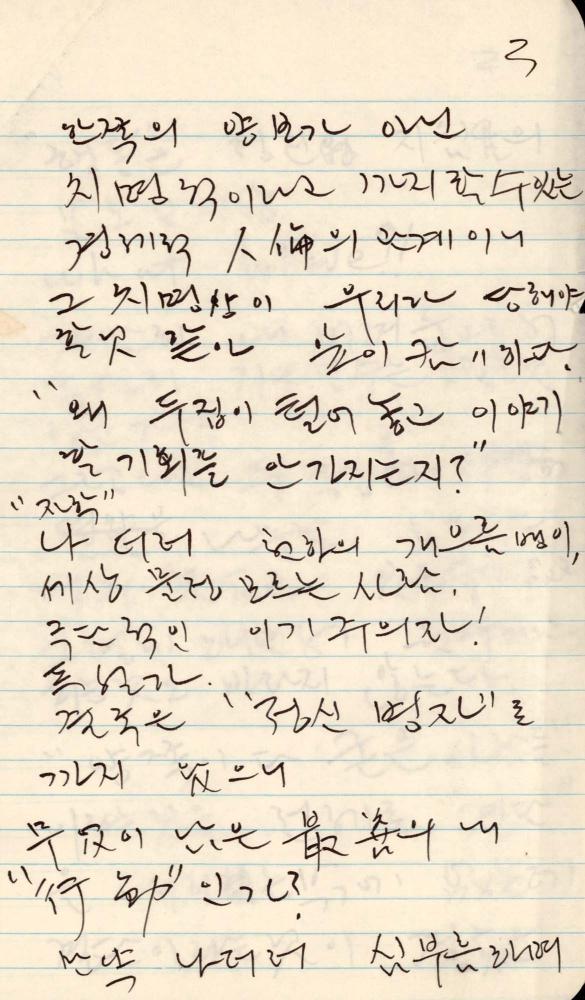 3
한쪽의 양보가 아닌
치명적이라고 까지 할 수 있는
경제적 人倫의 관계이니
그 치명상이 우리가 당해야
할 것 같아 눈이 캄〃하다.
"왜 두집이 털어 놓고 이야기
할 기회를 안가지는지?"
"자학"
나 더러 천하의 개으름뱅이,
세상 물정 모르는 사람.
극소적인 이기주의자!
독설가.
결국은 "정신 병자"로
까지  됬으니
무엇이 남은 最善의 내
"行動"인가?
만약 나더러 심부름 하며